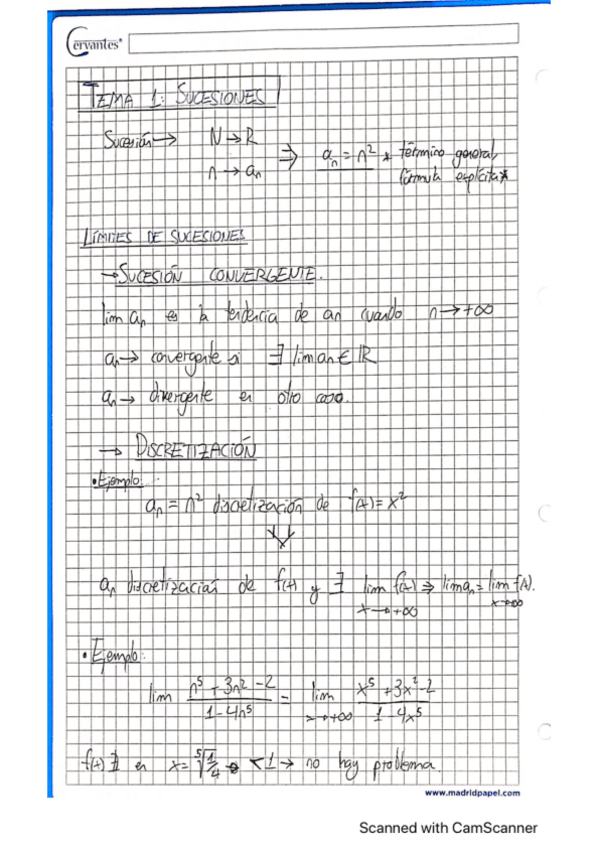 Cervantes®
TEMA 1: SUCESIONES
Sucesión → N → R
n → aₙ ⇒ aₙ = n² * término general,
fórmula explícita*
LÍMITES DE SUCESIONES
→ SUCESIÓN CONVERGENTE.
lim aₙ es la tendencia de an cuando n → +∞
aₙ → convergente si ∃ lim an ∈ ℝ
aₙ → divergente en otro caso.
→ DISCRETIZACIÓN
• Ejemplo:
aₙ = n² discretización de f(x) = x²
aₙ discretización de f(x) y ∃ lim f(x) ⇒ lim aₙ = lim f(x).
x → +∞ x → ∞
• Ejemplo:
lim (n⁵ + 3n² - 2)/(1 - 4n⁵) = lim (x⁵ + 3x² - 2)/(1 - 4x⁵)
x → +∞
f(x) ∄ en x = ⁵√(1/4) < 1 → no hay problema.
www.madridpapel.com
Scanned with CamScanner